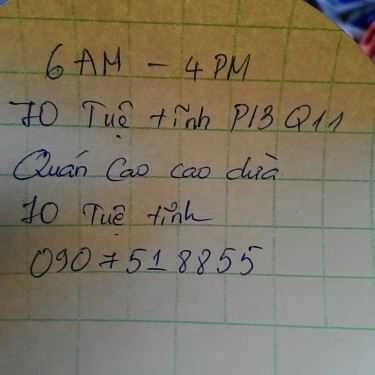 6 AM - 4 PM
70 Tuệ tĩnh P13 Q11
Quán Cao cao dừa
70 Tuệ tĩnh
0907518855